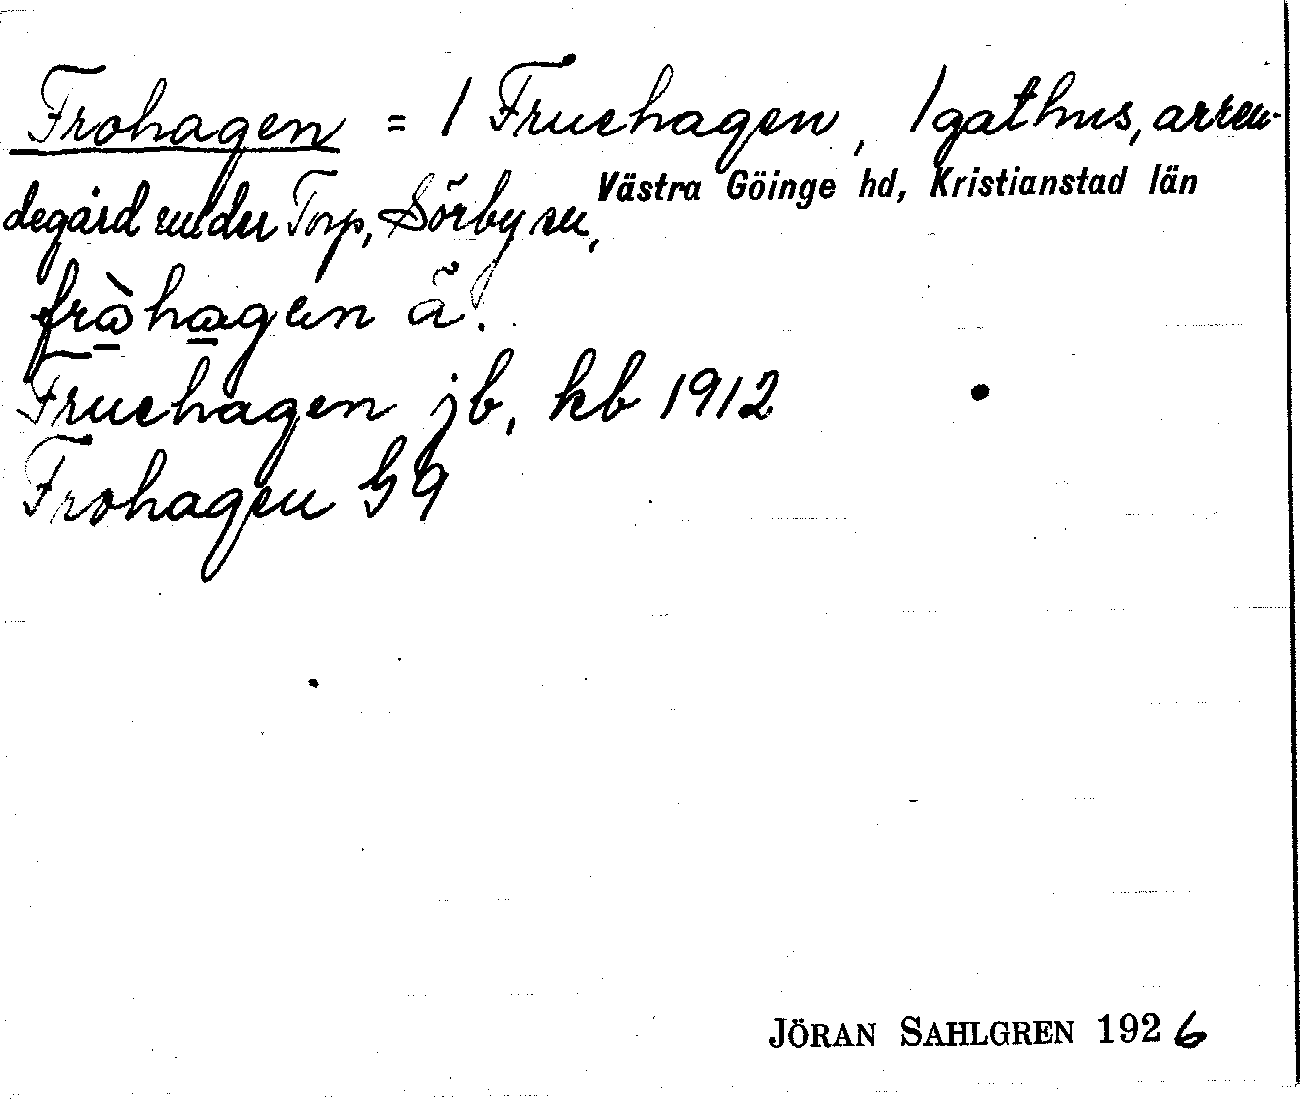 Frohagen = / Fruehagen, / gathus, arren-
Västra Göinge hd, Kristianstad län
degård under Torp, Sörby sn,
hagen ä.
Fruehagen jb, kb 1912
Frohagen G 9
JÖRAN SAHLGREN 1926